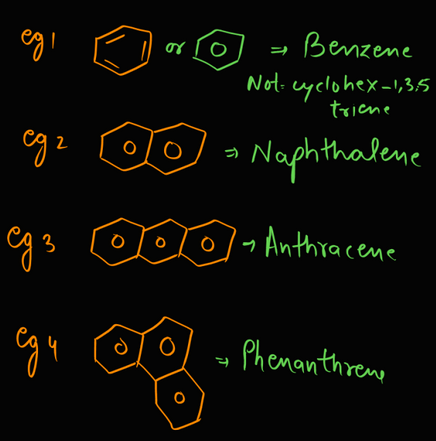 eg 1 or ⇒ Benzene
Not: cyclohex-1,3,5
triene
eg 2 ⇒ Naphthalene
eg 3 → Anthracene
eg 4 ⇒ Phenanthrene